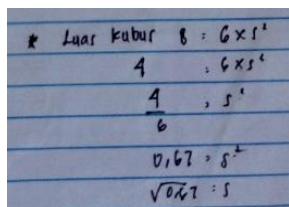 * Luas kubus 8 : 6 x s²
4 : 6 x s²
4/6 , s²
0,67 = s²
√0,67 : s